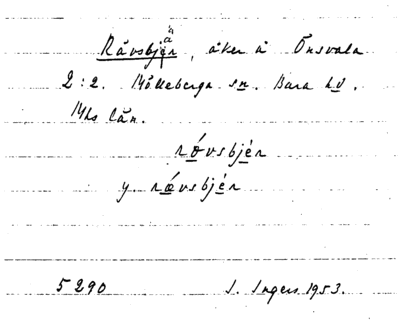 Råvsbjär, åker å Önsvala
2:2. Mölleberga sn. Bara hd.
Mhs län.
róvsbjér
y. rǽvsbjér
5290 I. Ingers 1953.